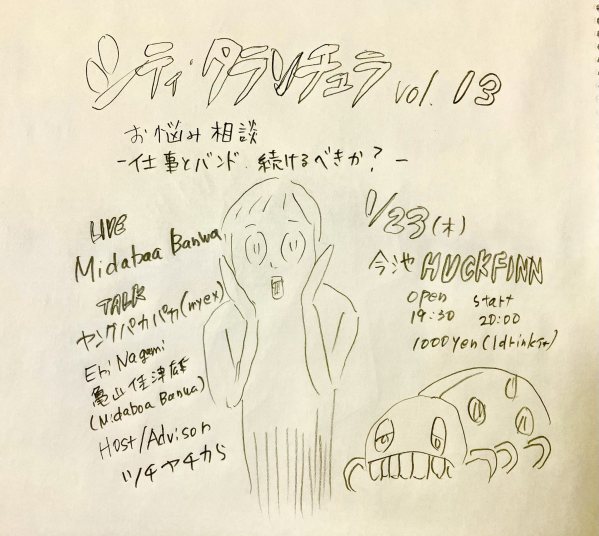 シティ・タランチュラ vol. 13
お悩み相談
-仕事とバンド、続けるべきか? -
LIVE
Midabaa Banwa
TALK
ヤングパカパカ(myex)
Eri Nagami
亀山佳津雄
(Midaboa Banwa)
Host/Advisor
ツチヤチカら
1/23(木)
今池 HUCKFINN
open start
19:30 20:00
1000yen(1drink付)